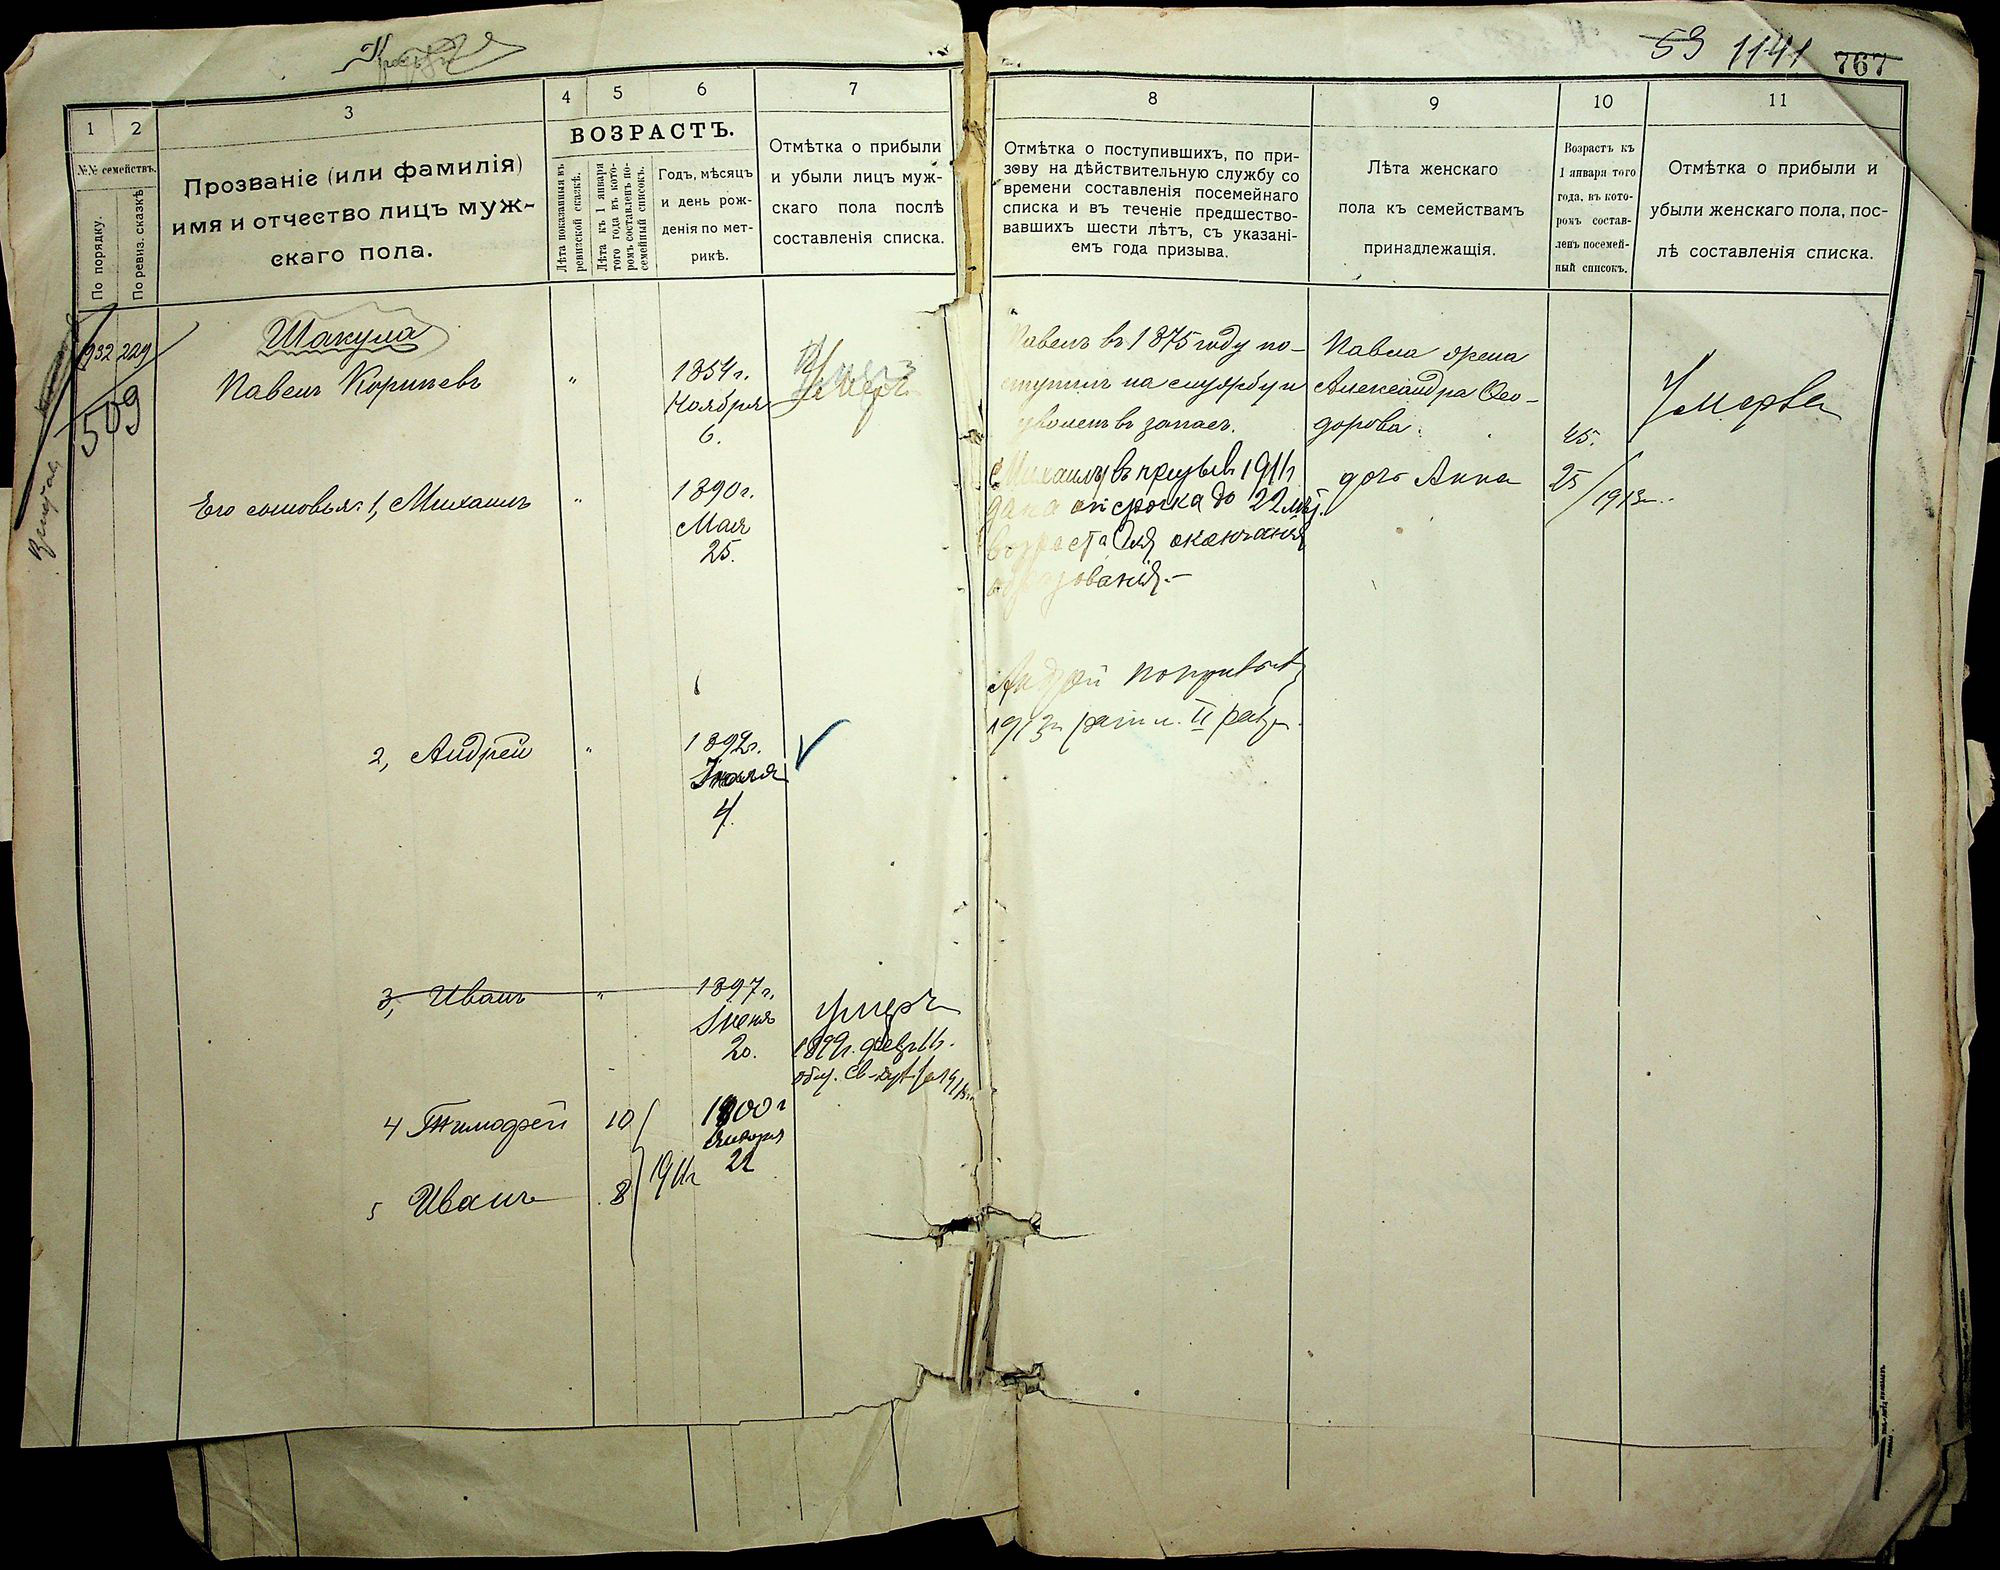 53 1141 767
1 2 3 4 5 6 7 8 9 10 11
№№ семействъ.
По порядку.
По ревиз. сказкѣ
Прозваніе (или фамилія)
имя и отчество лицъ муж-
скаго пола.
ВОЗРАСТЪ.
Лѣта показанныя въ
ревизской сказкѣ.
Лѣта къ 1 января
того года въ кото-
ромъ составленъ по-
семейный списокъ.
Годъ, мѣсяцъ
и день рож-
денія по мет-
рикѣ.
Отмѣтка о прибыли
и убыли лицъ муж-
скаго пола послѣ
составленія списка.
Отмѣтка о поступившихъ, по при-
зову на дѣйствительную службу со
времени составленія посемейнаго
списка и въ теченіе предшество-
вавшихъ шести лѣтъ, съ указані-
емъ года призыва.
Лѣта женскаго
пола къ семействамъ
принадлежащія.
Возрастъ къ
1 января того
года, въ кото-
ромъ состав-
ленъ посемей-
ный списокъ.
Отмѣтка о прибыли и
убыли женскаго пола, пос-
лѣ составленія списка.
1932 229
509
Шакула
Павелъ Корнѣевъ " 1854 г.
Ноября
6.
Умеръ
Павелъ въ 1875 году по-
ступилъ на службу и
уволенъ въ запасъ.
Павла жена
Александра Ѳео-
дорова. 45.
Умерла
Его сыновья: 1, Михаилъ " 1890 г.
Мая
25.
Михаилу въ призывъ 1911 г
дана отсрочка до 22 лѣт.
возраста для окончанія
образованія.–
дочь Анна 25 / 1913 г.
2, Андрей " 1892 г.
Іюля
4.
Андрей
1913 г II
3, Иванъ " 1897 г.
Іюня
20.
умеръ
4 Тимофей 10 1900 г
Января
22
5 Иванъ 8 1911 г